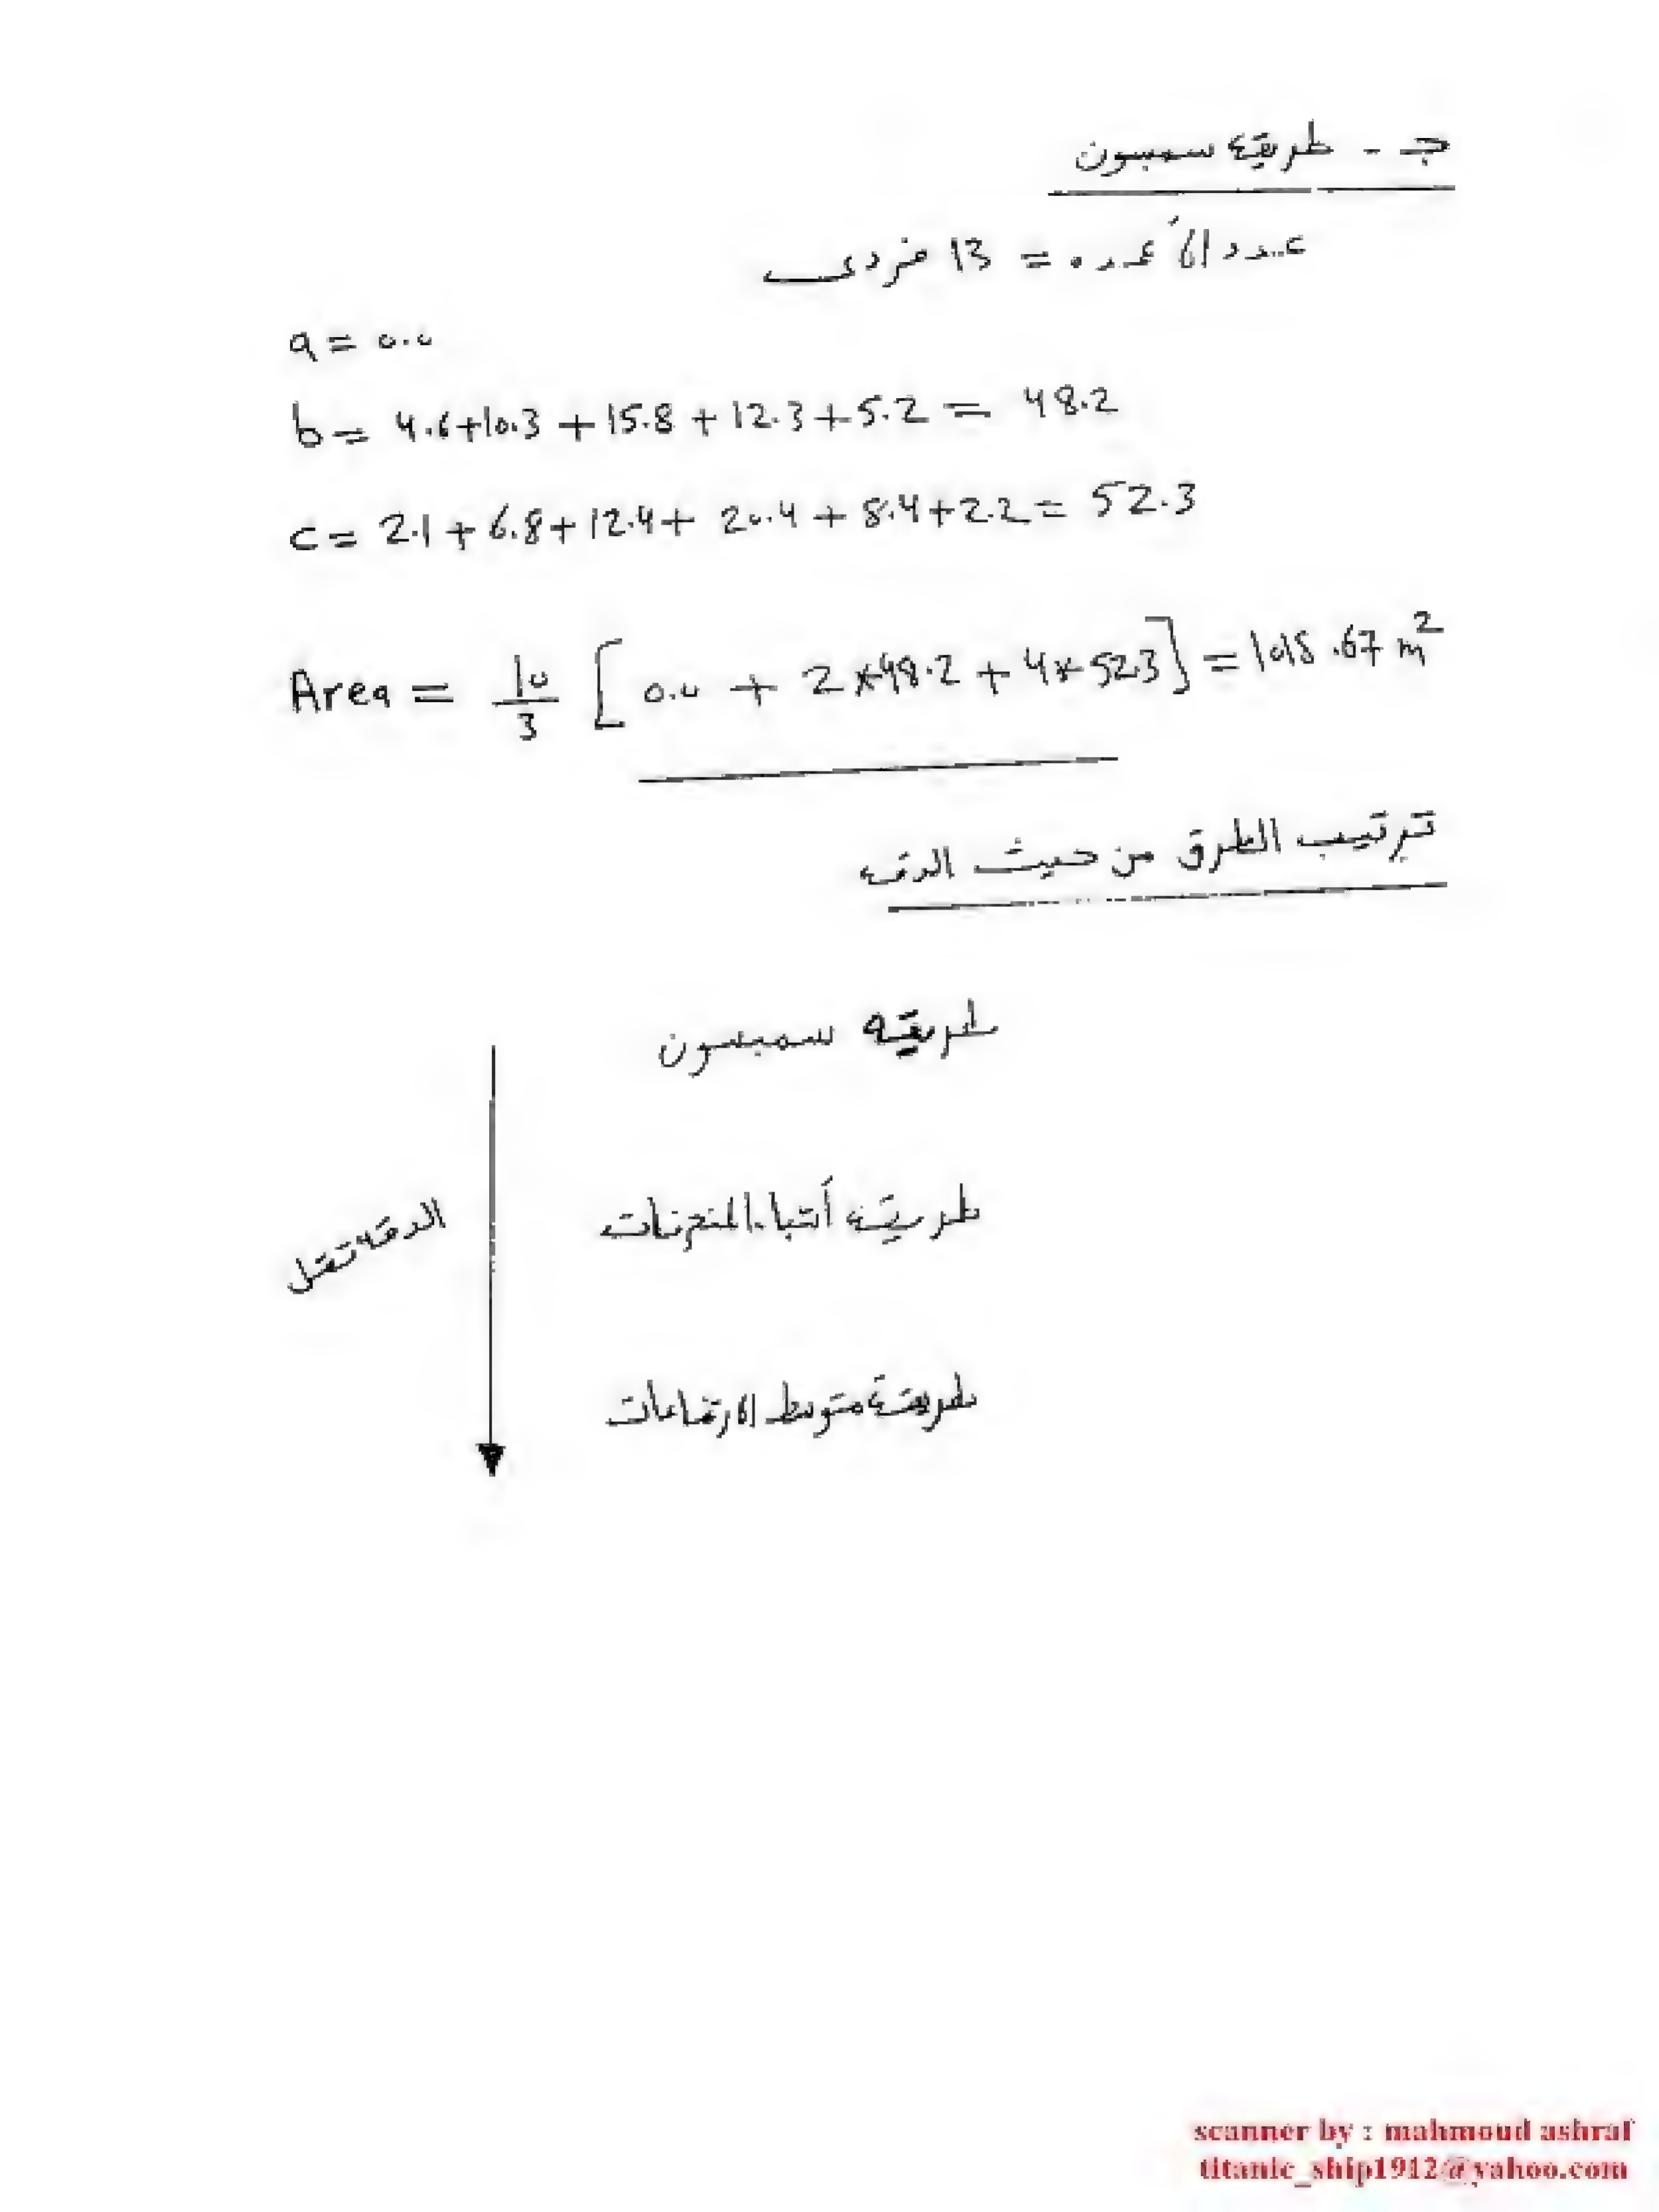 جـ - طريقة سمبسون
عدد الأعمده = 13 فردى
a = 0.0
b = 4.6+10.3 + 15.8 + 12.3 + 5.2 = 48.2
c = 2.1 + 6.8 + 12.4 + 20.4 + 8.4 + 2.2 = 52.3
Area = 10/3 [ 0.0 + 2*48.2 + 4*52.3 ] = 1018.67 m²
ترتيب الطرق من حيث الدقه
طريقه سمبسون
طريقة أشباه المنحرفات
الدقه تقل
طريقة متوسط الارتفاعات
scanner by : mahmoud ashraf
titanic_ship1912@yahoo.com